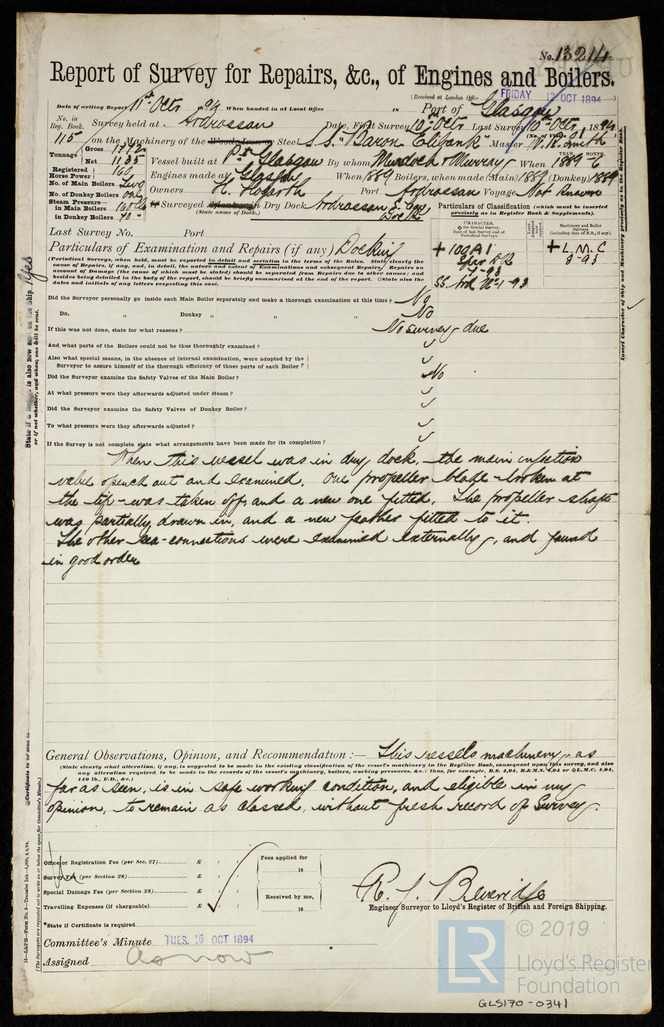 No. 13214
Report of Survey for Repairs, &c., of Engines and Boilers.
(Received at London Office FRIDAY 12 OCT 1894
Date of writing Report 11th Octr 94 When handed in at Local Office 18 Port of Glasgow
No. in Reg. Book. Survey held at Ardrossan Date, First Survey 10th Octr Last Survey 10th Octr 1894
115 on the Machinery of the Wood, Iron or Steel S.S. "Baron Elibank" Master W. R. Smith
Tonnage Gross 1812 Net 1135 Vessel built at Pt Glasgow By whom Murdoch & Murray When 1889 6
Registered Horse Power 160 Engines made at Glasgow When 1889 Boilers, when made (Main) 1889 (Donkey) 1889
No. of Main Boilers Two Owners H. Hogarth Port Ardrossan Voyage Not known
No. of Donkey Boilers One
Steam Pressure in Main Boilers 160 lbs Surveyed Afloat or in Dry Dock Ardrossan S. Bay Dock
in Donkey Boilers 70 (State name of Dock.)
Particulars of Classification (which must be inserted precisely as in Register Book & Supplements).
Last Survey No. Port
Particulars of Examination and Repairs (if any) Docking
(Periodical Surveys, when held, must be reported in detail and seriatim in the terms of the Rules. State clearly the cause of Repairs, if any, and, in detail, the nature and extent of Examinations and subsequent Repairs. Repairs on account of Damage (the cause of which must be stated) should be separated from Repairs due to other causes; and besides being detailed in the body of the report, should be briefly summarised at the end of the report. State also the dates and initials of any letters respecting this case.
+100A1
1-93
+L.M.C
3-93
Did the Surveyor personally go inside each Main Boiler separately and make a thorough examination at this time? No
Do. „ Donkey „ „ „ „ No
If this was not done, state for what reasons? No survey due
And what parts of the Boilers could not be thus thoroughly examined?
Also what special means, in the absence of internal examination, were adopted by the
Surveyor to assure himself of the thorough efficiency of those parts of each Boiler?
Did the Surveyor examine the Safety Valves of the Main Boiler? No
At what pressure were they afterwards adjusted under steam?
Did the Surveyor examine the Safety Valves of Donkey Boiler?
To what pressure were they afterwards adjusted?
If the Survey is not complete state what arrangements have been made for its completion?
When this vessel was in dry dock, the main injection
valve opened out and examined. One propeller blade - broken at
the tip - was taken off, and a new one fitted. The propeller shaft
was partially drawn in, and a new feather fitted to it.
The other sea-connections were examined externally, and found
in good order
General Observations, Opinion, and Recommendation:— This vessel's machinery, as
(State clearly what alteration, if any, is suggested to be made in the existing classification of the vessel's machinery in the Register Book, consequent upon this survey, and also
any alteration required to be made in the records of the vessel's machinery, boilers, working pressures, &c.: thus, for example, B.S. 4,94, B.&M.S. 4,94 or L.M.C. 4,94,
140 lb., F.D., &c.)
far as seen, is in safe working condition, and eligible in my
opinion, to remain as classed, without fresh record of Survey.
Office or Registration Fee (per Sec. 27) £ : :
Survey Fee (per Section 28) £ : :
Special Damage Fee (per Section 28) £ : :
Travelling Expenses (if chargeable) £ : :
Fees applied for 18
Received by me, 18
*State if Certificate is required
R. J. Beveridge
Engineer Surveyor to Lloyd's Register of British and Foreign Shipping.
Committee's Minute TUES. 16 OCT 1894
Assigned as now
© 2019
LR
Lloyd's Register
Foundation
GLS170-0341